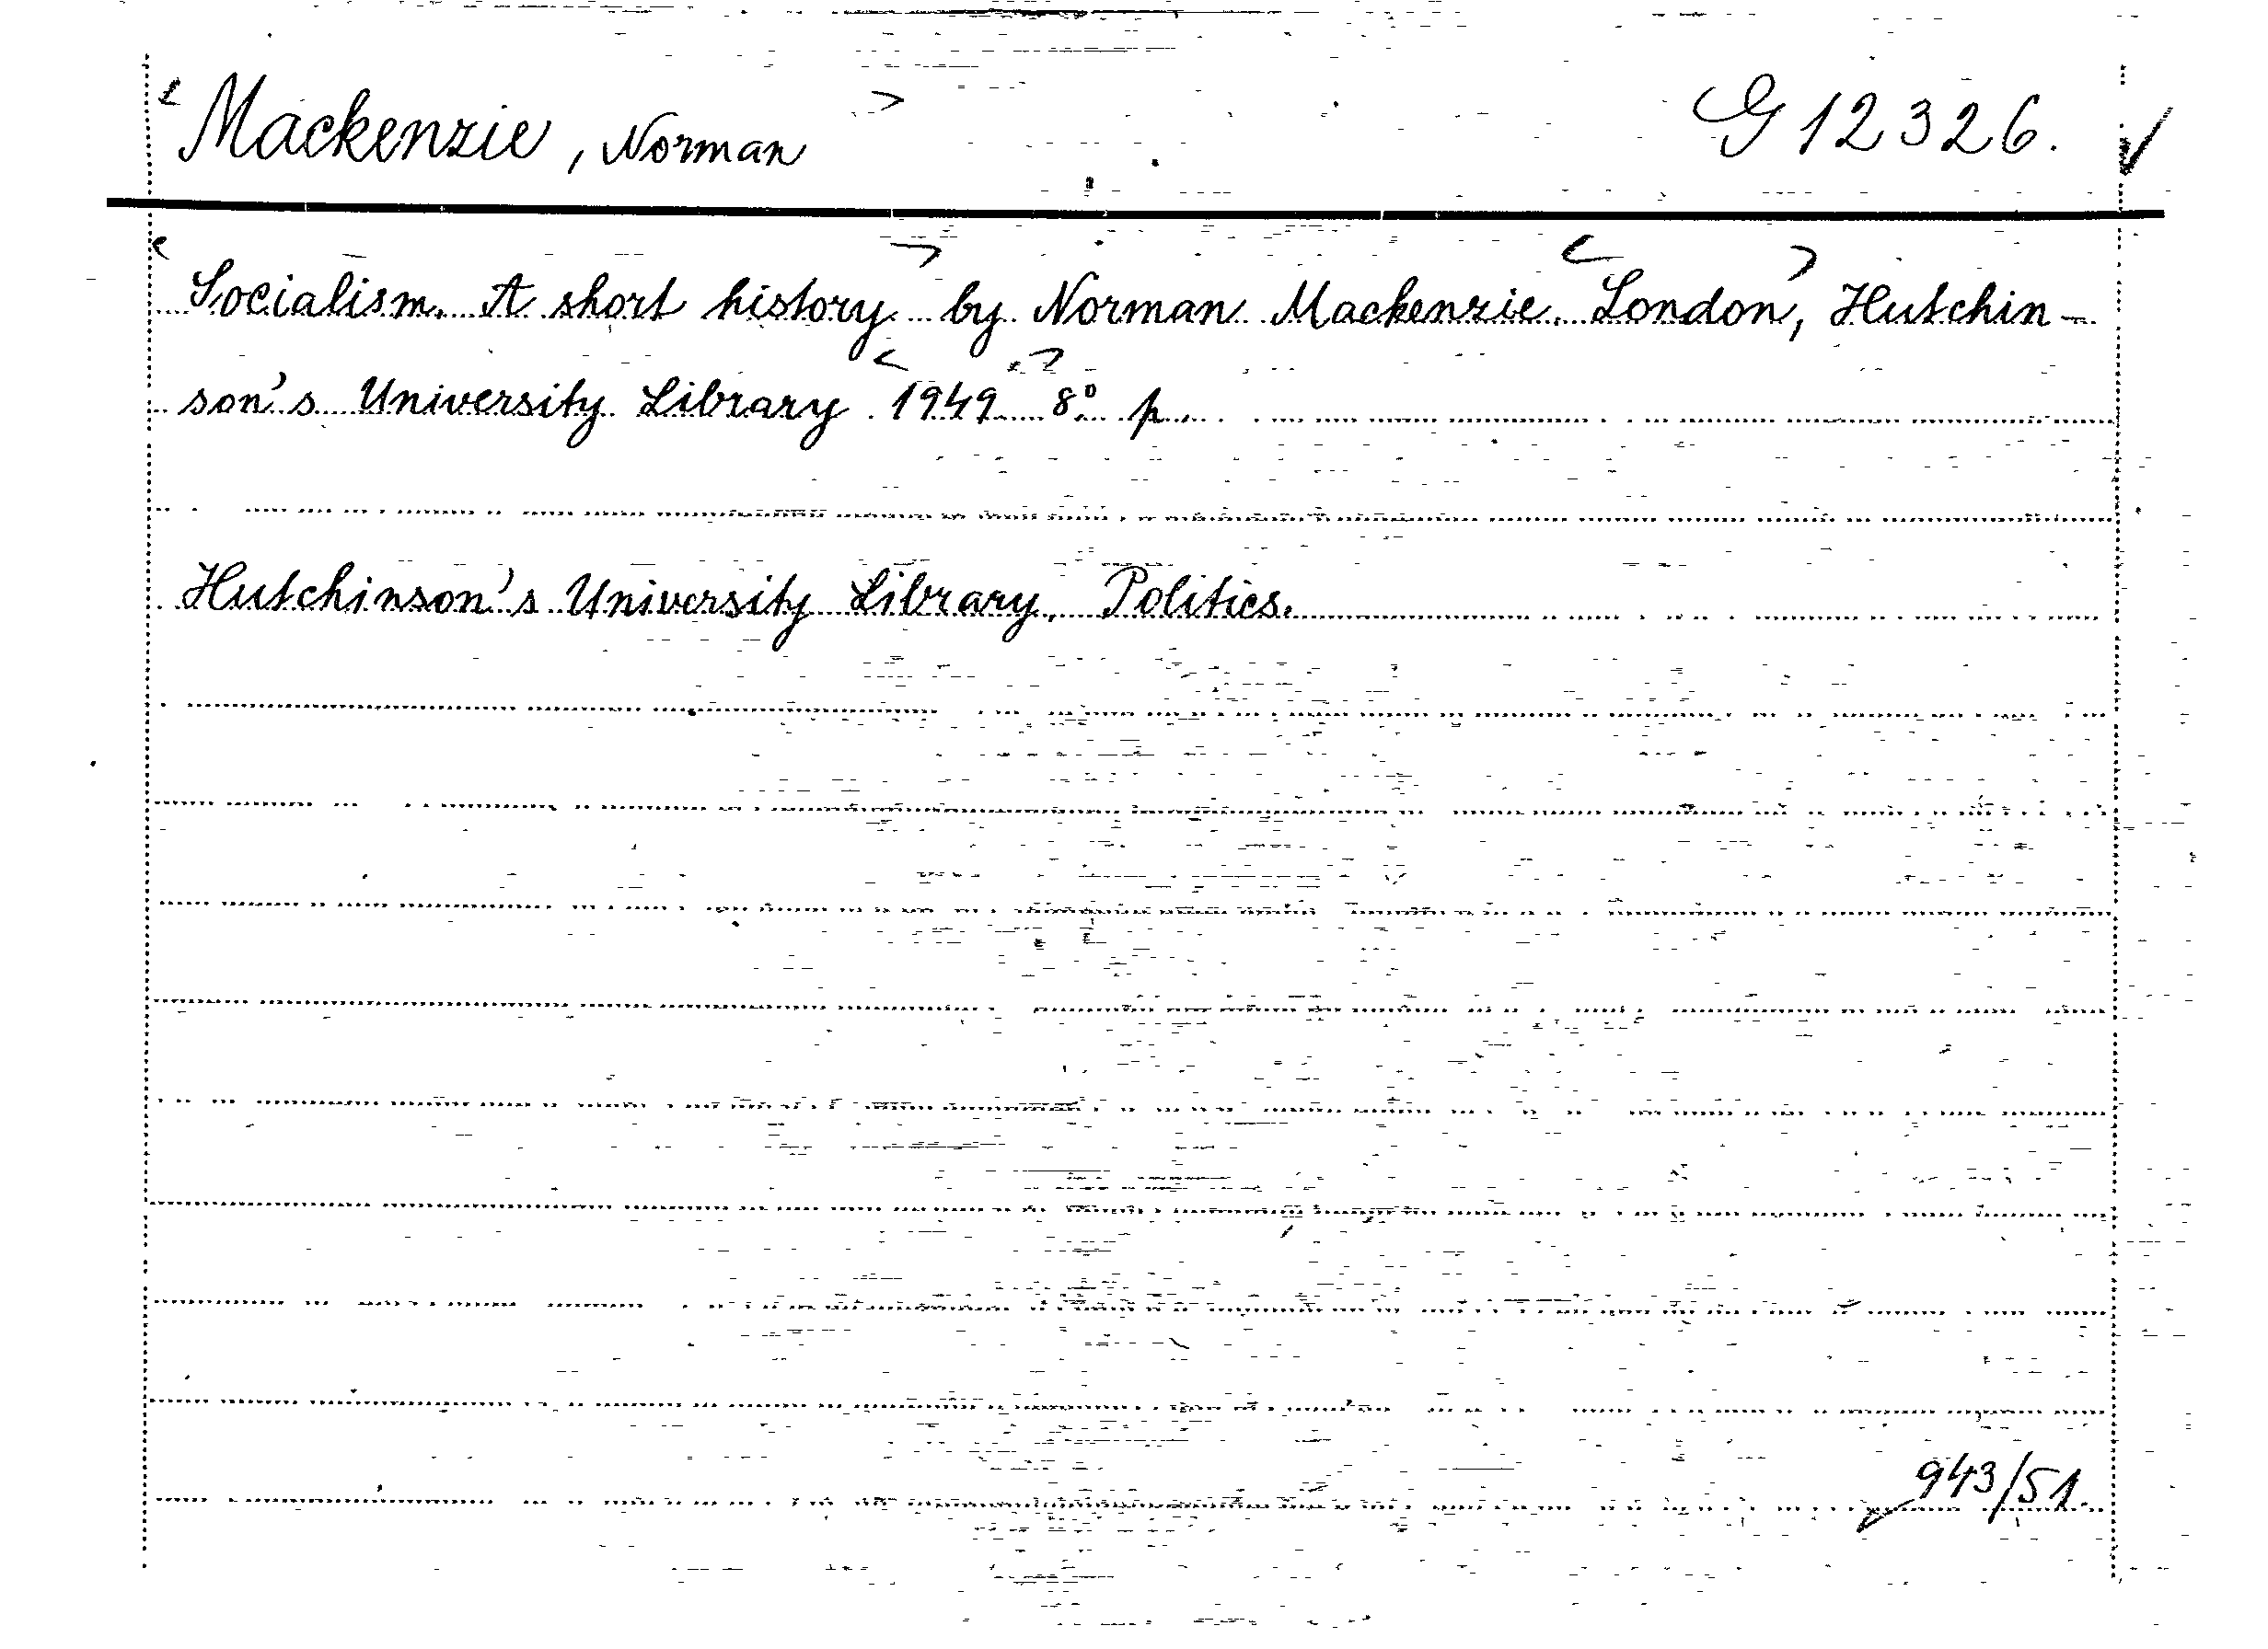 Mackenzie, Norman G 12326.
Socialism. A short history by Norman Mackenzie. London, Hutchin-
son's University Library 1949 8° p.
Hutchinson's University Library, Politics.
943/51.